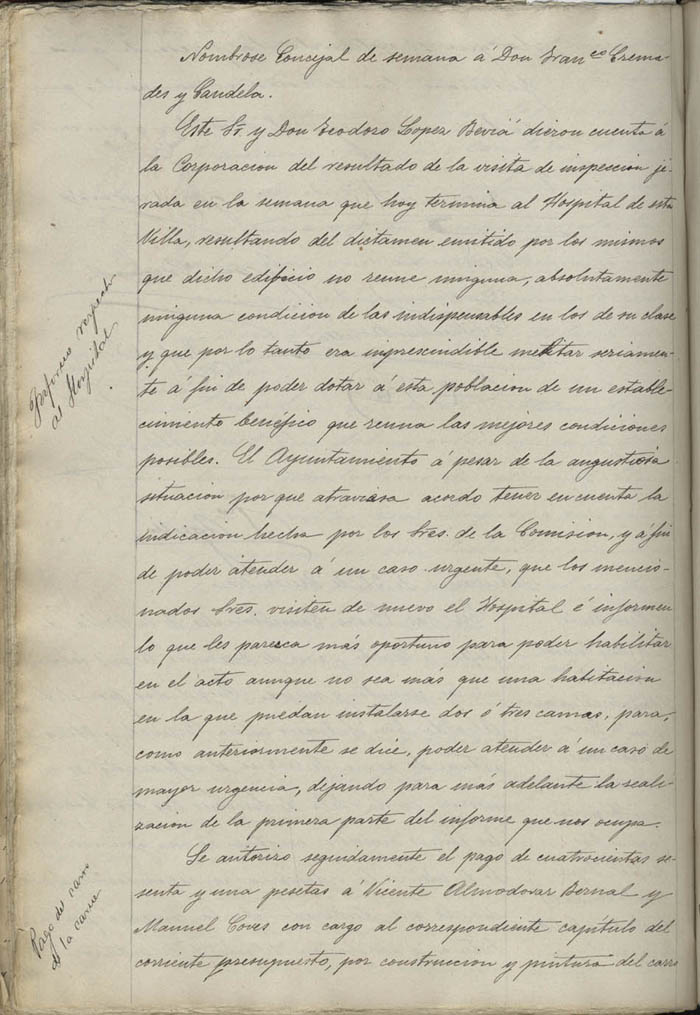 Nombrose Concejal de semana á Don Franco Crema-
des y Candela.
Este Sr. y Don Teodoro Lopez Beviá dieron cuenta á
la Corporacion del resultado de la visita de inspeccion ji-
rada en la semana que hoy termina al Hospital de esta
Villa, resultando del dictamen emitido por los mismos
que dicho edificio no reune ninguna, absolutamente
ninguna condicion de las indispensables en los de su clase
y que por lo tanto era imprescindible meditar seriamen-
te á fin de poder dotar á esta poblacion de un estable-
cimiento benéfico que reuna las mejores condiciones
posibles. El Ayuntamiento á pesar de la angustiosa
situacion por que atraviesa acordo tener en cuenta la
indicacion hecha por los Sres. de la Comision, y á fin
de poder atender á un caso urgente, que los mencio-
nados Sres. visiten de nuevo el Hospital é informen
lo que les paresca más oportuno para poder habilitar
en el acto aunque no sea más que una habitacion
en la que puedan instalarse dos ó tres camas, para,
como anteriormente se dice, poder atender á un caso de
mayor urgencia, dejando para más adelante la reali-
zacion de la primera parte del informe que nos ocupa.
Se autorizo seguidamente el pago de cuatrocientas se-
senta y una pesetas á Vicente Almodovar Bernal y
Manuel Coves con cargo al correspondiente capítulo del
corriente presupuesto, por construccion y pintura del carro
respecto
al Hospital
Pago del carro
de la carne